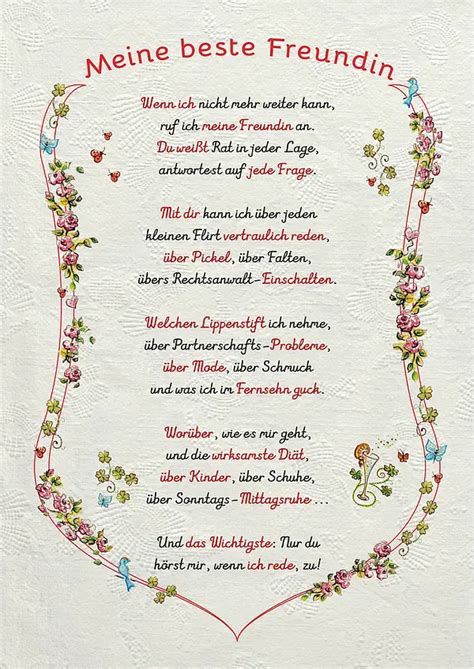 Meine beste Freundin
Wenn ich nicht mehr weiter kann,
ruf ich meine Freundin an.
Du weißt Rat in jeder Lage,
antwortest auf jede Frage.
Mit dir kann ich über jeden
kleinen Flirt vertraulich reden,
über Pickel, über Falten,
übers Rechtsanwalt-Einschalten.
Welchen Lippenstift ich nehme,
über Partnerschafts-Probleme,
über Mode, über Schmuck
und was ich im Fernsehn guck.
Worüber, wie es mir geht,
und die wirksamste Diät,
über Kinder, über Schuhe,
über Sonntags-Mittagsruhe ...
Und das Wichtigste: Nur du
hörst mir, wenn ich rede, zu!